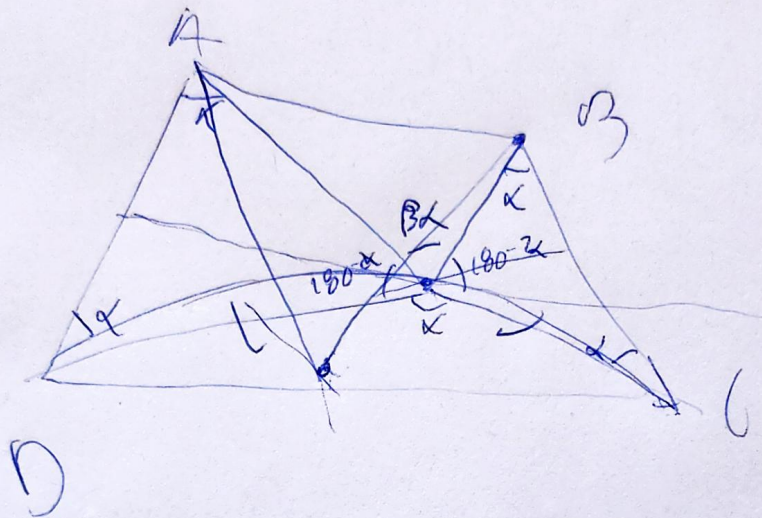 A
B
α
α
βα
180-α
180-2α
α
α
α
D
C